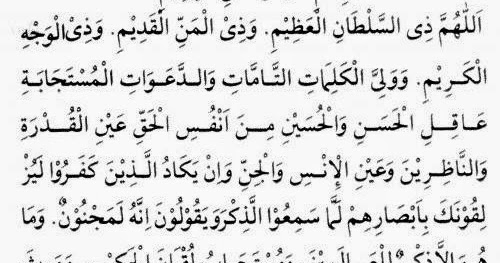 اَللّٰهُمَّ ذِى السُّلْطَانِ الْعَظِيْمِ. وَذِى الْمَنِّ الْقَدِيْمِ. وَذِى الْوَجْهِ
الْكَرِيْمِ. وَوَلِىِّ الْكَلِمَاتِ التَّامَّاتِ وَالدَّعَوَاتِ الْمُسْتَجَابَةِ
عَاقِلِ الْحَسَنِ وَالْحُسَيْنِ مِنَ اَنْفُسِ الْحَقِّ عَيْنِ الْقُدْرَةِ
وَالنَّاظِرِيْنَ وَعَيْنِ الْاِنْسِ وَالْجِنِّ وَاِنْ يَكَادُ الَّذِيْنَ كَفَرُوْا لَيُزْ
لِقُوْنَكَ بِاَبْصَارِهِمْ لَمَّا سَمِعُوا الذِّكْرَ وَيَقُوْلُوْنَ اِنَّهُ لَمَجْنُوْنٌ. وَمَا